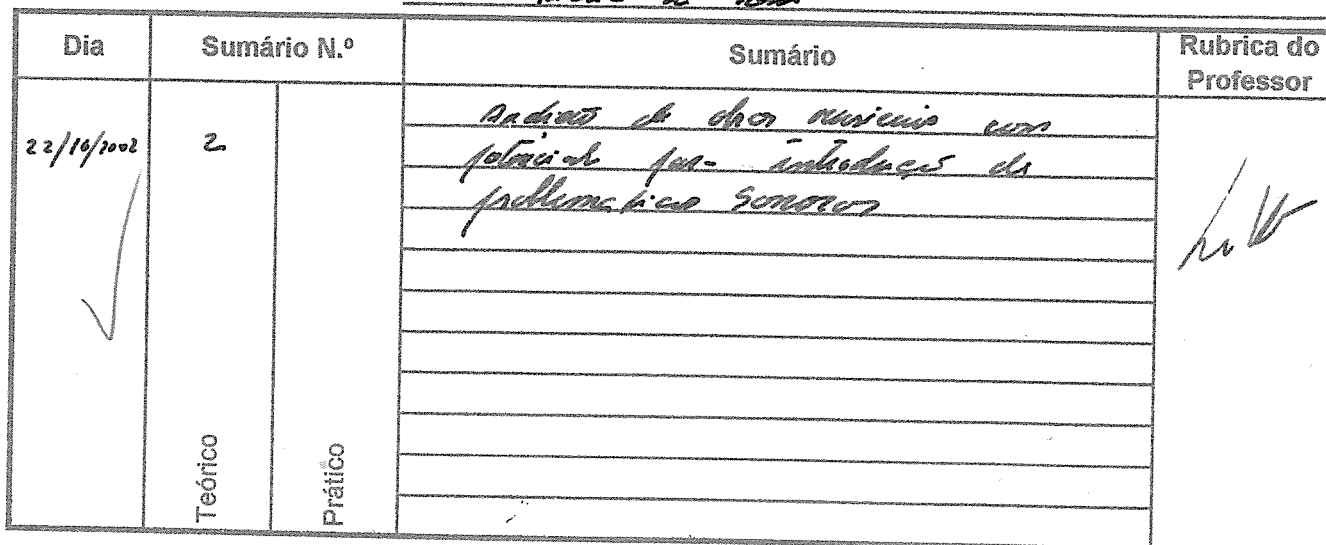 Dia
Sumário N.º
Sumário
Rubrica do
Professor
22/10/2002
2
Audição de obras musicais com
potencial para introdução de
problemáticas sonoras
Teórico
Prático